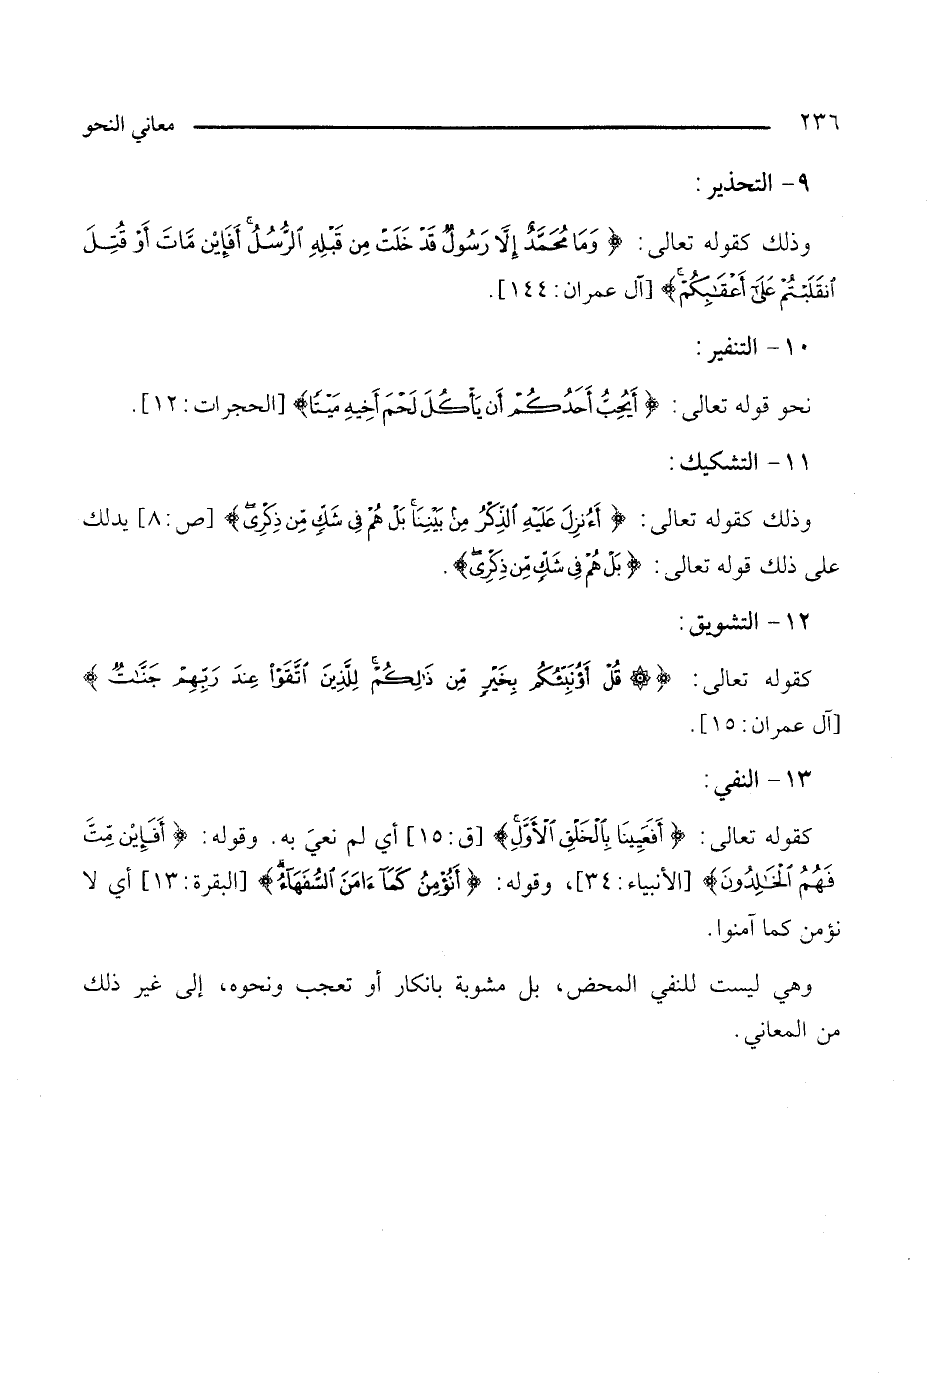 ٢٣٦ معاني النحو
٩- التحذير :
وذلك كقوله تعالى: ﴿ وَمَا مُحَمَّدٌ إِلَّا رَسُولٌ قَدْ خَلَتْ مِن قَبْلِهِ ٱلرُّسُلُ ۚ أَفَإِيْن مَّاتَ أَوْ قُتِلَ
ٱنقَلَبْتُمْ عَلَىٰٓ أَعْقَـٰبِكُمْ ۚ ﴾ [آل عمران: ١٤٤].
١٠- التنفير :
نحو قوله تعالى: ﴿ أَيُحِبُّ أَحَدُكُمْ أَن يَأْكُلَ لَحْمَ أَخِيهِ مَيْتًا ﴾ [الحجرات: ١٢].
١١- التشكيك :
وذلك كقوله تعالى: ﴿ أَءُنزِلَ عَلَيْهِ ٱلذِّكْرُ مِنۢ بَيْنِنَا ۚ بَلْ هُمْ فِى شَكٍّ مِّن ذِكْرِى ۖ ﴾ [ص: ٨] يدلك
على ذلك قوله تعالى: ﴿ بَلْ هُمْ فِى شَكٍّ مِّن ذِكْرِى ۖ ﴾ .
١٢- التشويق :
كقوله تعالى: ﴿ ۞ قُلْ أَؤُنَبِّئُكُم بِخَيْرٍ مِّن ذَٰلِكُمْ ۚ لِلَّذِينَ ٱتَّقَوْا۟ عِندَ رَبِّهِمْ جَنَّـٰتٌ ﴾
[آل عمران: ١٥].
١٣- النفي :
كقوله تعالى: ﴿ أَفَعَيِينَا بِٱلْخَلْقِ ٱلْأَوَّلِ ۚ ﴾ [ق: ١٥] أي لم نعيَ به. وقوله: ﴿ أَفَإِيْن مِّتَّ
فَهُمُ ٱلْخَـٰلِدُونَ ﴾ [الأنبياء: ٣٤]، وقوله: ﴿ أَنُؤْمِنُ كَمَآ ءَامَنَ ٱلسُّفَهَآءُ ۗ ﴾ [البقرة: ١٣] أي لا
نؤمن كما آمنوا.
وهي ليست للنفي المحض، بل مشوبة بانكار أو تعجب ونحوه، إلى غير ذلك
من المعاني.